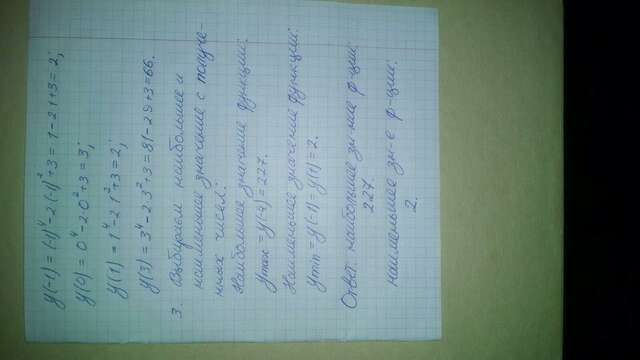 y(-1) = (-1)⁴ - 2·(-1)² + 3 = 1 - 2·1 + 3 = 2;
y(0) = 0⁴ - 2·0² + 3 = 3;
y(1) = 1⁴ - 2·1² + 3 = 2;
y(3) = 3⁴ - 2·3² + 3 = 81 - 2·9 + 3 = 66.
3. Выбираем наибольшее и
наименьшее значение с получе-
нных чисел:
Наибольшее значение функции:
ymax = y(-4) = 227.
Наименьшее значение функции:
ymin = y(-1) = y(1) = 2.
Ответ: наибольшее зн-ние ф-ции:
227.
наименьшее зн-е ф-ции:
2.